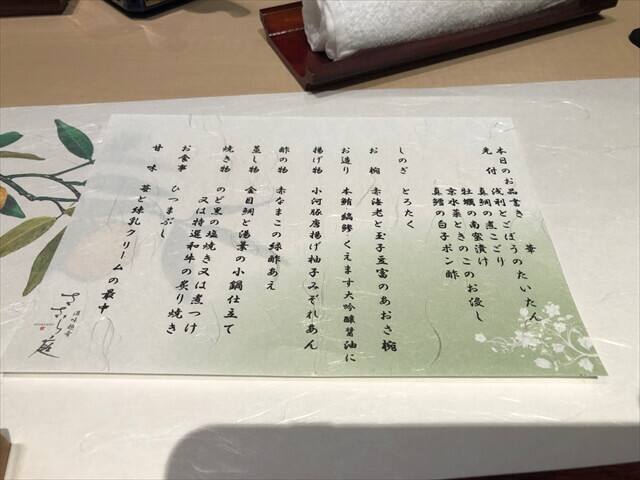 本日のお品書き　華
先付　浅利とごぼうのたいたん
真鯛の煮こごり
牡蠣の南蛮漬け
京水菜ときのこのお浸し
真鱈の白子ポン酢
しのぎ　とろたく
お椀　赤海老と玉子豆富のあおさ椀
お造り　本鮪　縞鰺　くえます大吟醸醤油に
揚げ物　小河豚唐揚げ柚子みぞれあん
酢の物　赤なまこの緑酢あえ
蒸し物　金目鯛と湯葉の小鍋仕立て
焼き物　のど黒の塩焼き又は煮つけ
又は特選和牛の炙り焼き
お食事　ひつまぶし
甘味　苺と練乳クリームの最中